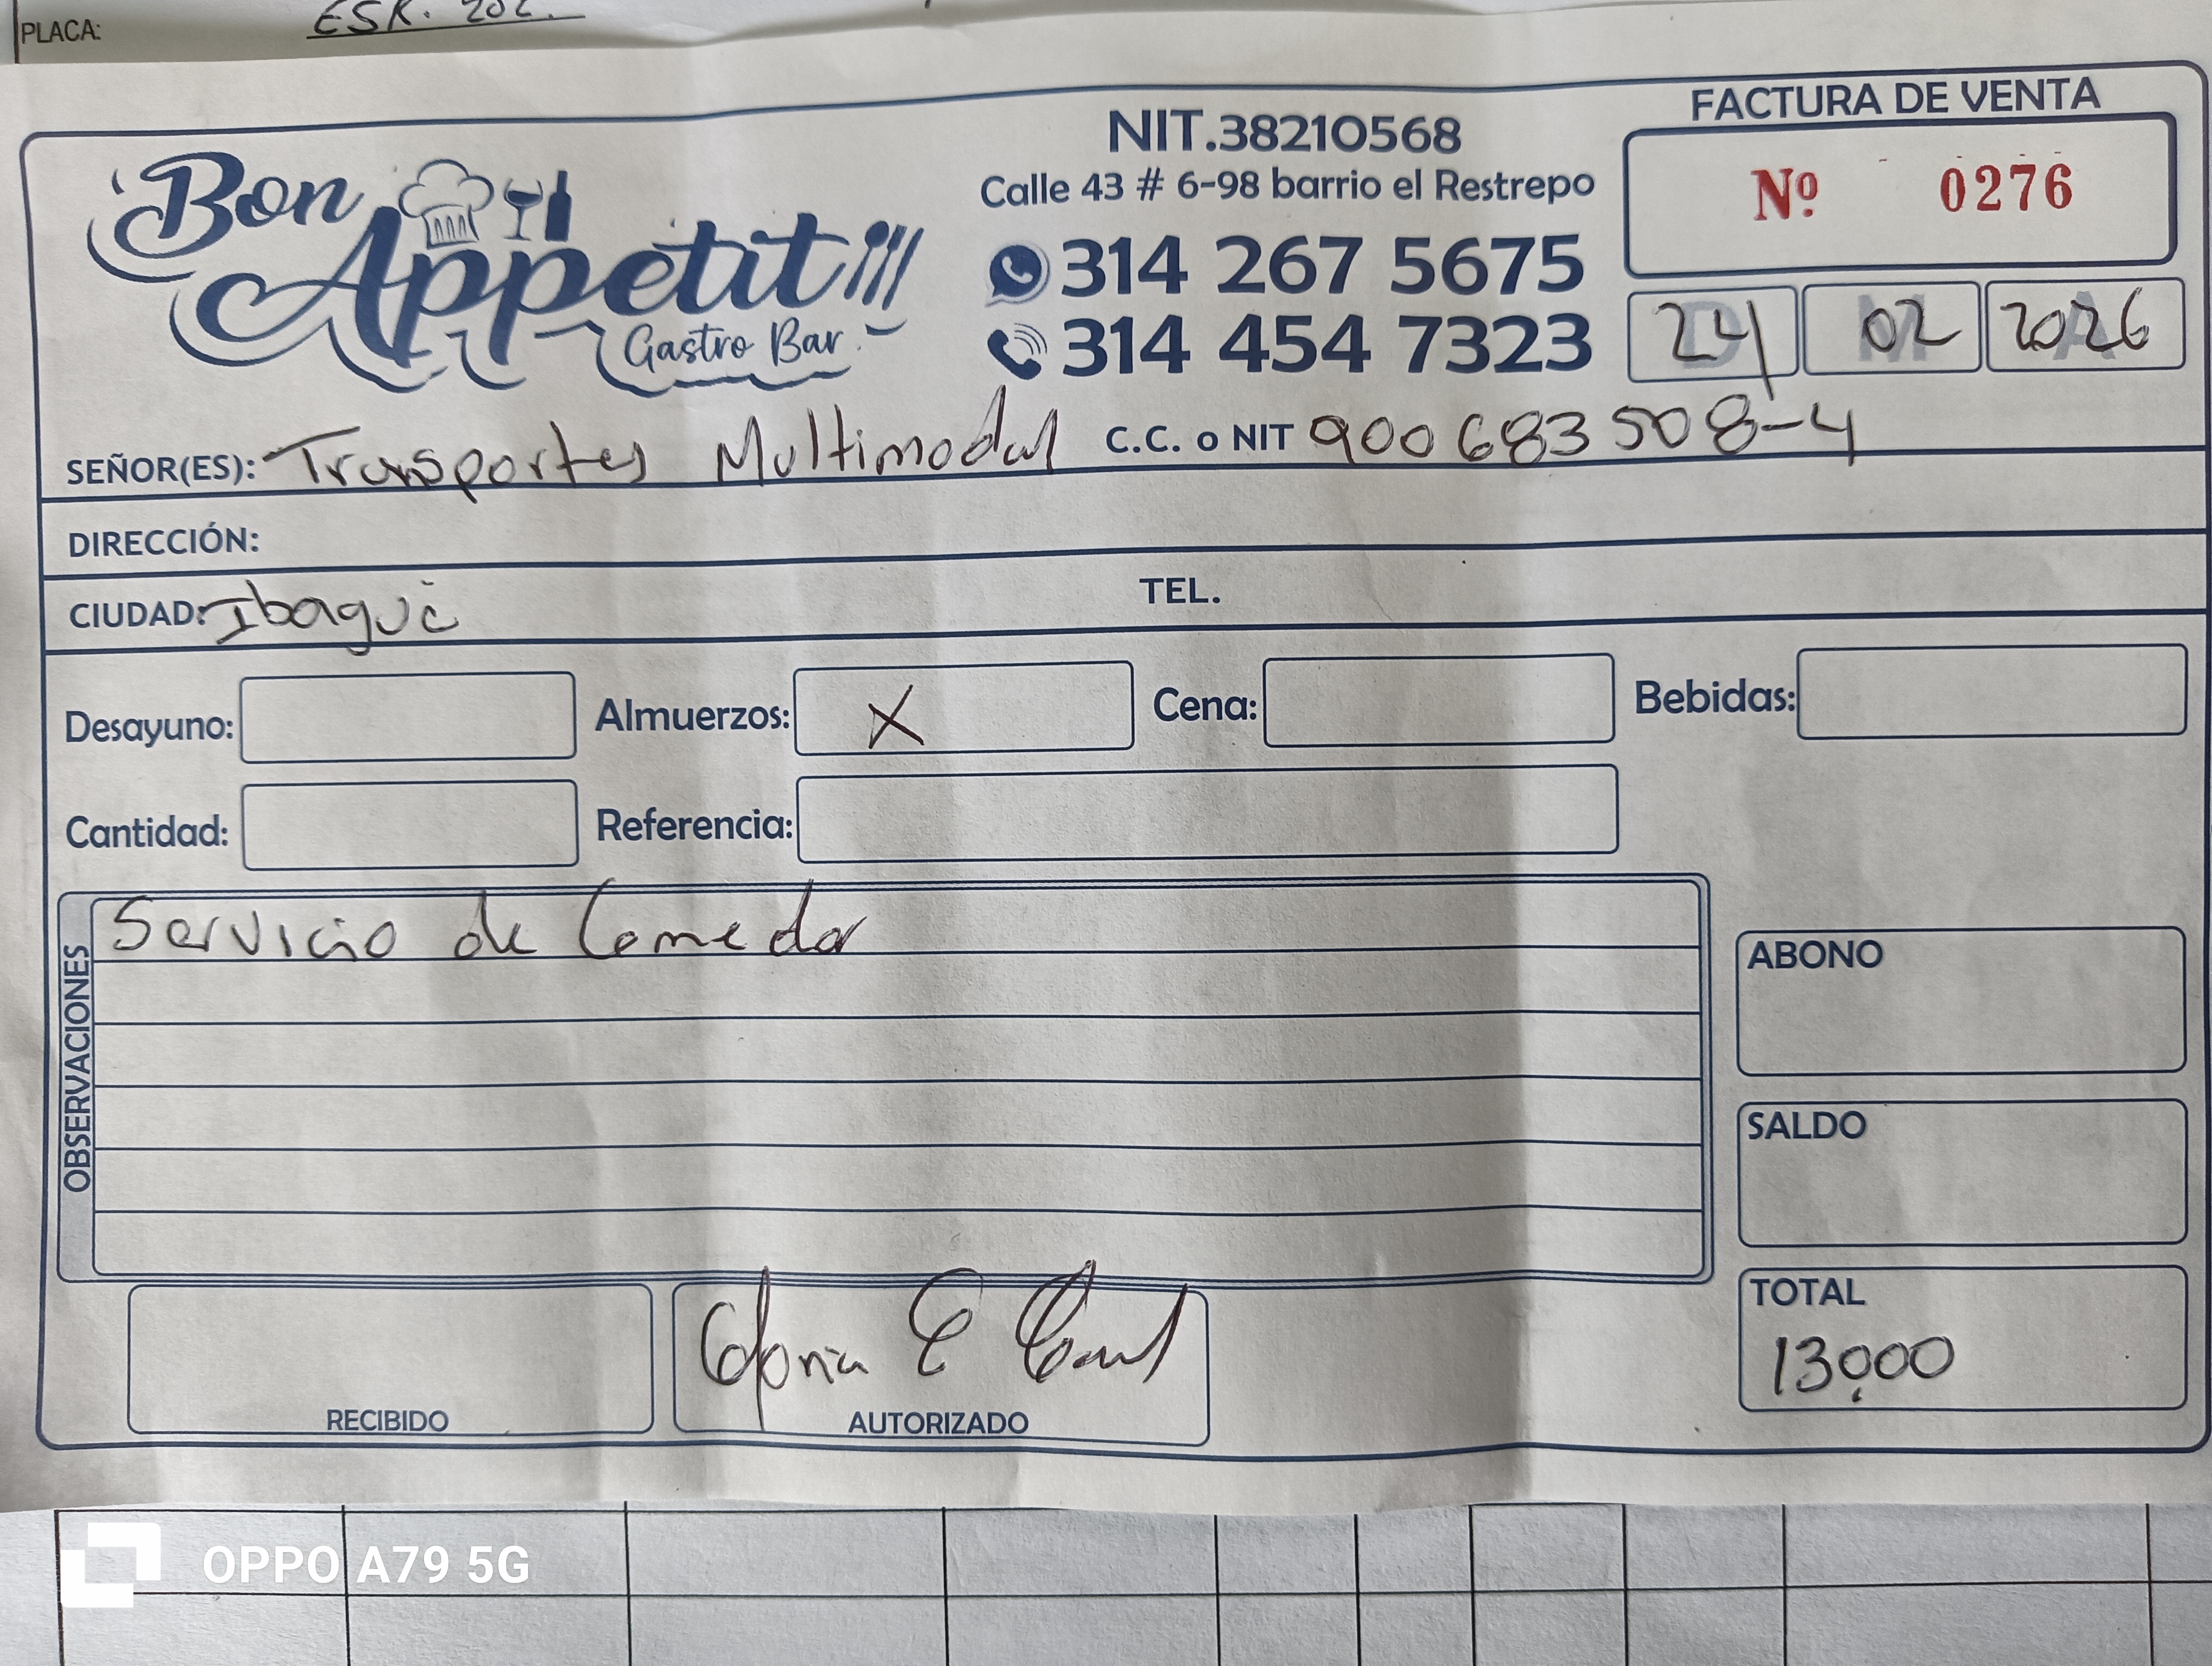 PLACA: ESK. 202.
FACTURA DE VENTA
Bon Appetit
Gastro Bar
NIT.38210568
Calle 43 # 6-98 barrio el Restrepo
314 267 5675
314 454 7323
Nº 0276
D M A
24 02 2026
SEÑOR(ES): Transportes Multimodal C.C. o NIT 900683508-4
DIRECCIÓN:
CIUDAD: Ibagué TEL.
Desayuno: Almuerzos: X Cena: Bebidas:
Cantidad: Referencia:
OBSERVACIONES
Servicio de Comedor
ABONO
SALDO
TOTAL
13.000
Gloria E
RECIBIDO AUTORIZADO
OPPO A79 5G